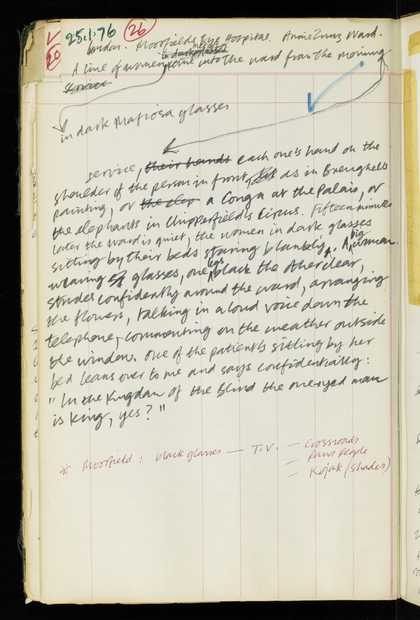 25.1.76 (26)
20
London. Moorfields Eye Hospital. Annie Zunz Ward.
A line of women come into the ward from the morning
service
in dark Mafiosa glasses
service, their hands each one's hand on the
shoulder of the person in front, as in Breughel's
painting, or the a Conga at the Palais, or
the elephants in Chipperfield's Circus. Fifteen minutes
later the ward is quiet, the women in dark glasses
sitting by their beds staring blankly. A big woman
wearing glasses, one lens black the other clear,
strides confidently around the ward, arranging
the flowers, talking in a loud voice down the
telephone, commenting on the weather outside
the window. One of the patients sitting by her
bed leans over to me and says confidentially:
"In the Kingdom of the Blind the one eyed man
is King, yes?"
* Moorfield: black glasses — T.V. — Crossroads
— Paris People
— Kojak (shades)